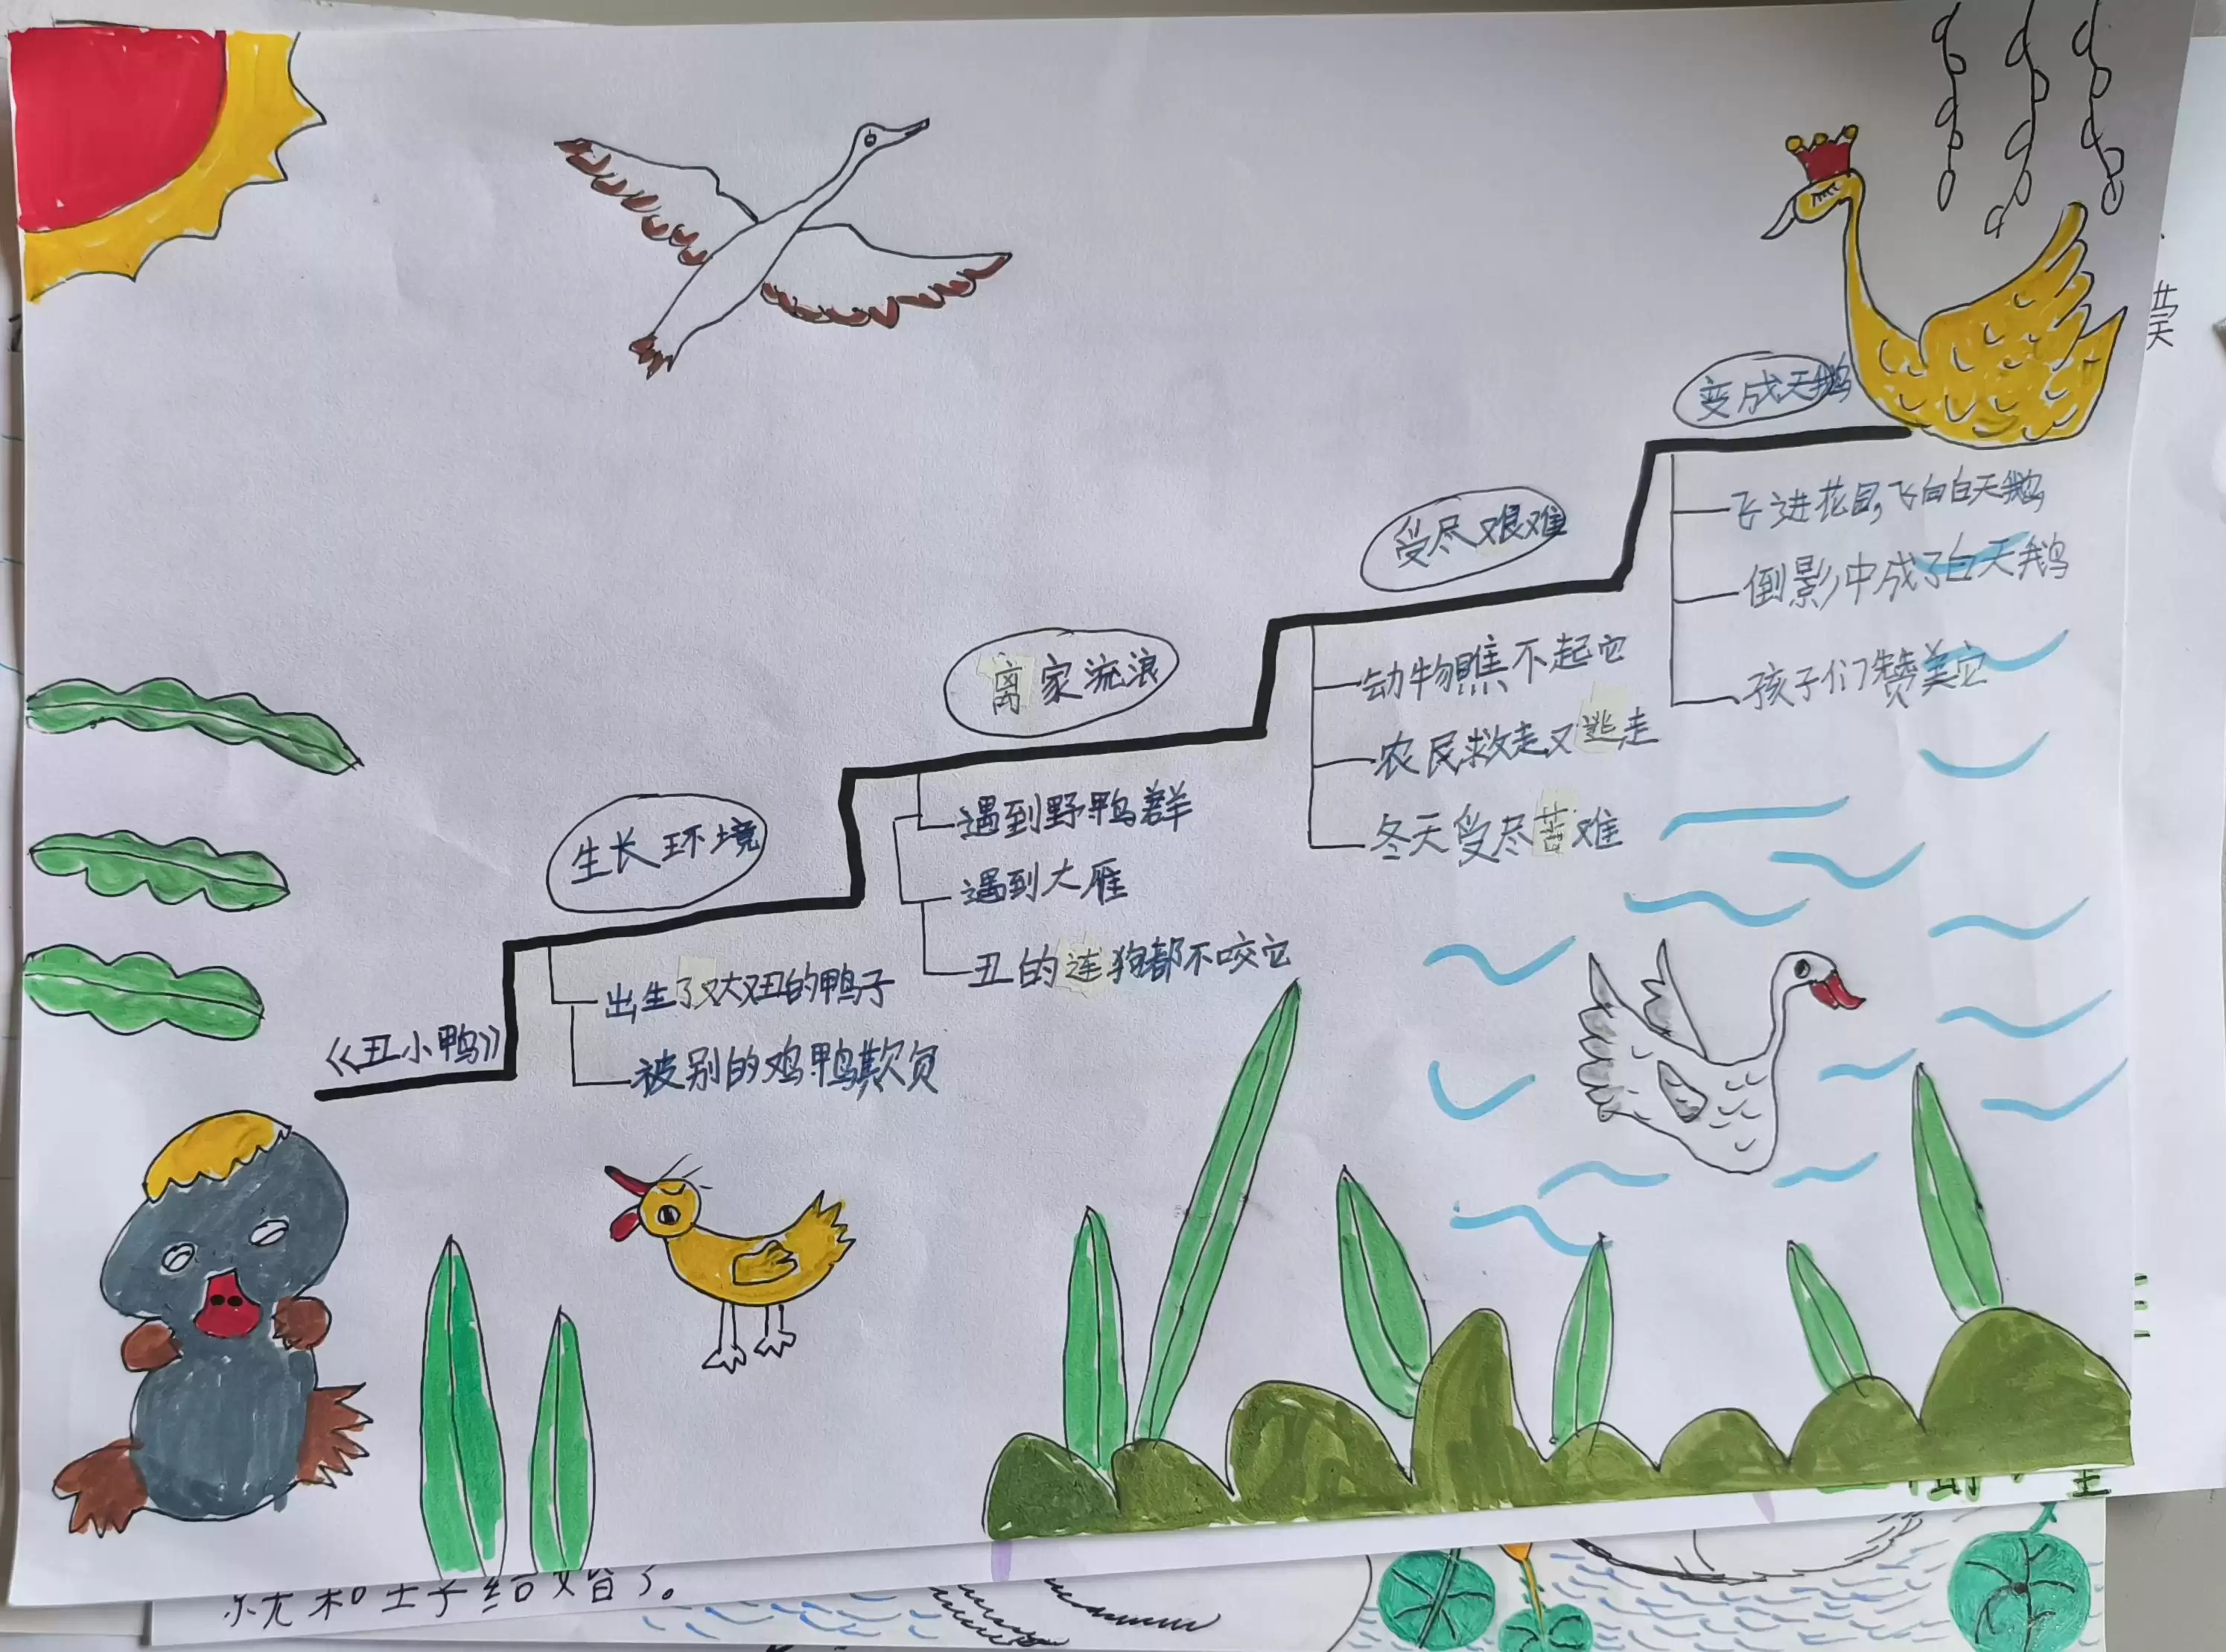 《丑小鸭》
生长环境
出生了又大又丑的鸭子
被别的鸡鸭欺负
离家流浪
遇到野鸭群
遇到大雁
丑的连狗都不咬它
受尽艰难
动物瞧不起它
农民救走又逃走
冬天受尽苦难
变成天鹅
飞进花园,飞向白天鹅
倒影中成了白天鹅
孩子们赞美它
和王子结婚了。